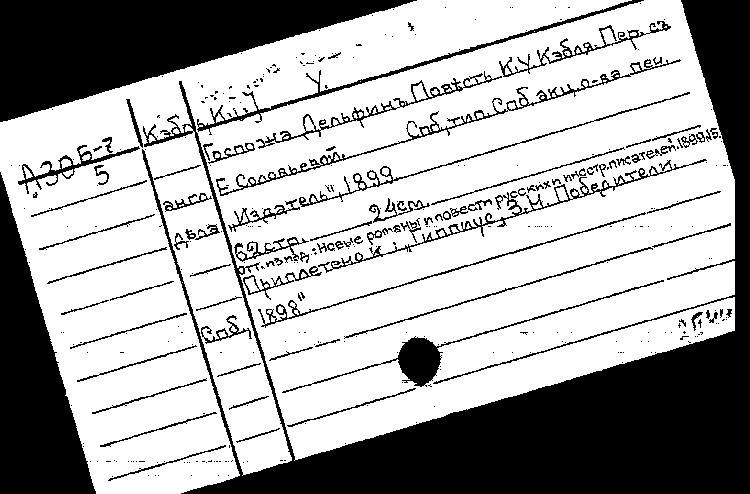 А30 Б-7
5
Кэбль, К.У.
Госпожа Дельфинъ Повѣсть К.У Кэбля. Пер. съ
англ Е. Соловьевой. Спб, тип. Спб акц. о-ва печ.
дѣла „Издатель", 1899.
62стр. 24см.
отт. из изд.: Новые романы и повести русских и иностр. писателей. 1899.15.
Приплетено к: „Гиппиус, З.Н. Победители.
Спб, 1898"